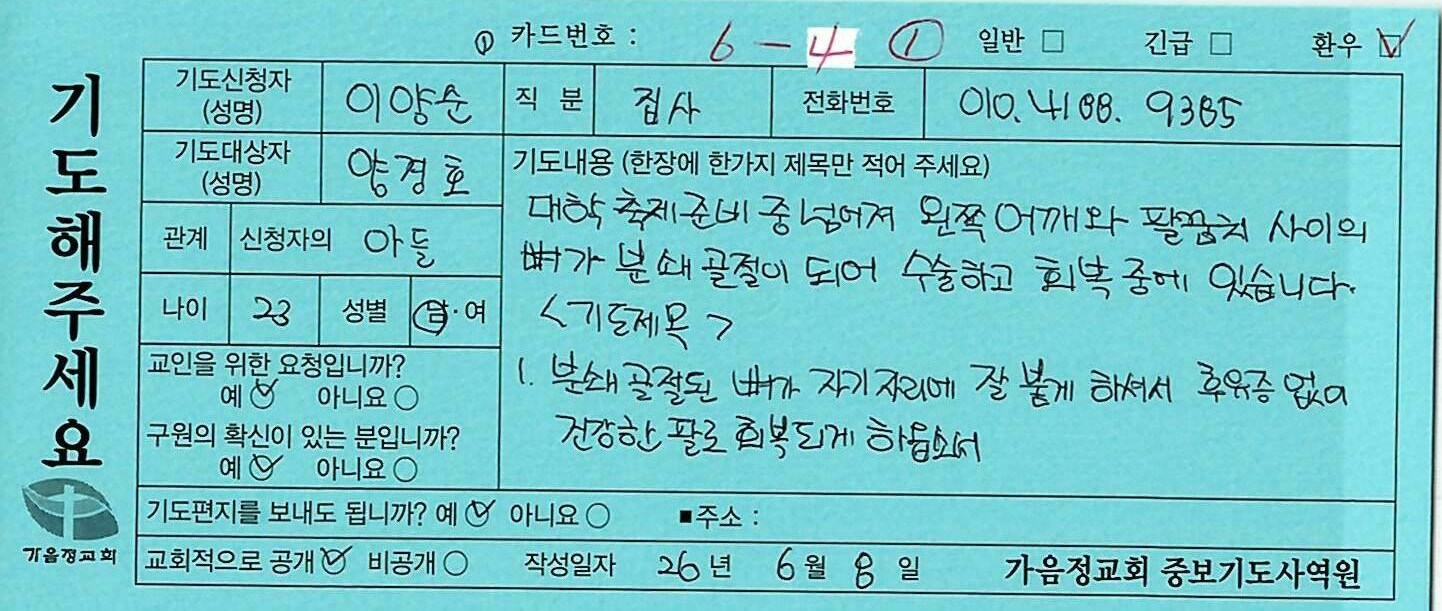 ① 카드번호 : 6-4 ① 일반 □ 긴급 □ 환우 ☑
기도해주세요
기도신청자 (성명) 이양순 직분 집사 전화번호 010. 4188. 9385
기도대상자 (성명) 양경호
관계 신청자의 아들
나이 23 성별 남·여
교인을 위한 요청입니까?
예 ☑ 아니요 ○
구원의 확신이 있는 분입니까?
예 ☑ 아니요 ○
기도내용 (한장에 한가지 제목만 적어 주세요)
대학 축제 준비 중 넘어져 왼쪽 어깨와 팔꿈치 사이의
뼈가 분쇄 골절이 되어 수술하고 회복 중에 있습니다.
<기도제목>
1. 분쇄 골절된 뼈가 자기 자리에 잘 붙게 하셔서 후유증 없이
건강한 팔로 회복되게 하옵소서
기도편지를 보내도 됩니까? 예 ☑ 아니요 ○ ■주소 :
교회적으로 공개 ☑ 비공개 ○ 작성일자 26년 6월 8일 가음정교회 중보기도사역원
가음정교회